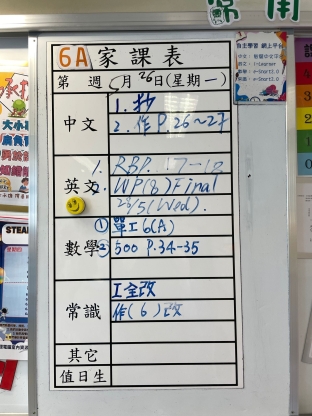 6A 家課表
第 週 5月26日(星期一)
中文
1. 抄
2. 作 P.26~27
英文
1. RBP. 17-18
2. WP(8) Final
28/5(Wed).
數學
① 單工6(A)
② 500 P.34-35
常識
工全改
作(6)改
其它
值日生
自主學習 網上平台